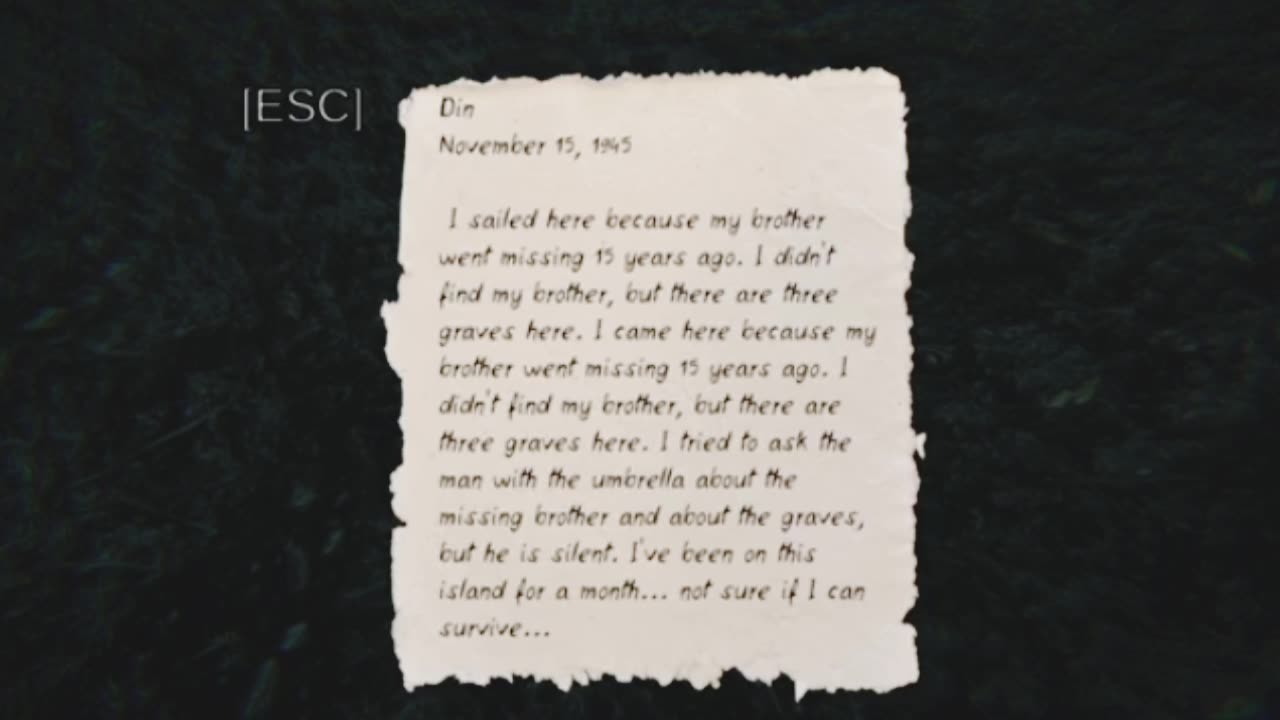 [ESC]
Din
November 15, 1945
I sailed here because my brother
went missing 15 years ago. I didn't
find my brother, but there are three
graves here. I came here because my
brother went missing 15 years ago. I
didn't find my brother, but there are
three graves here. I tried to ask the
man with the umbrella about the
missing brother and about the graves,
but he is silent. I've been on this
island for a month... not sure if I can
survive...